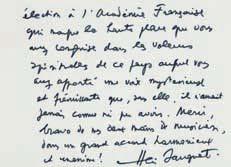 élection à l'Académie Française
qui marque la haute place que vous
avez conquise dans les valeurs
spirituelles de ce pays auquel vous
avez apporté une voix mystérieuse
et frémissante que, sans elle, il n'aurait
jamais connu ni pu avoir. Merci,
bravo de mes deux mains de musicien,
dans un grand accord harmonieux
et unanime!